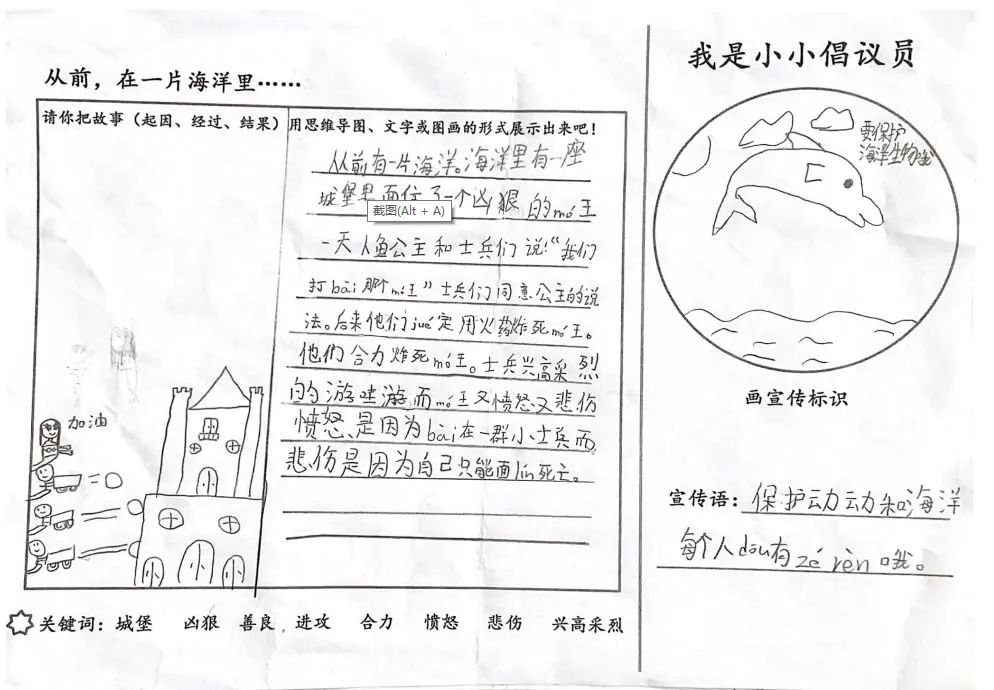 从前，在一片海洋里……
请你把故事（起因、经过、结果）用思维导图、文字或图画的形式展示出来吧！
从前有一片海洋。海洋里有一座
城堡里面住了一个凶狠的mó王
截图(Alt + A)
一天人鱼公主和士兵们说:“我们
打bài那个mó王”士兵们同意公主的说
法。后来他们jué定用火药炸死mó王。
他们合力炸死mó王。士兵兴高采烈
的游哇游而mó王又愤怒又悲伤
愤怒是因为bài在一群小士兵而
悲伤是因为自己只能面临死亡。
加油
关键词：城堡 凶狠 善良 进攻 合力 愤怒 悲伤 兴高采烈
我是小小倡议员
要保护
海洋生物哦
画宣传标识
宣传语：保护动动和海洋
每个人dōu有zé rèn哦。